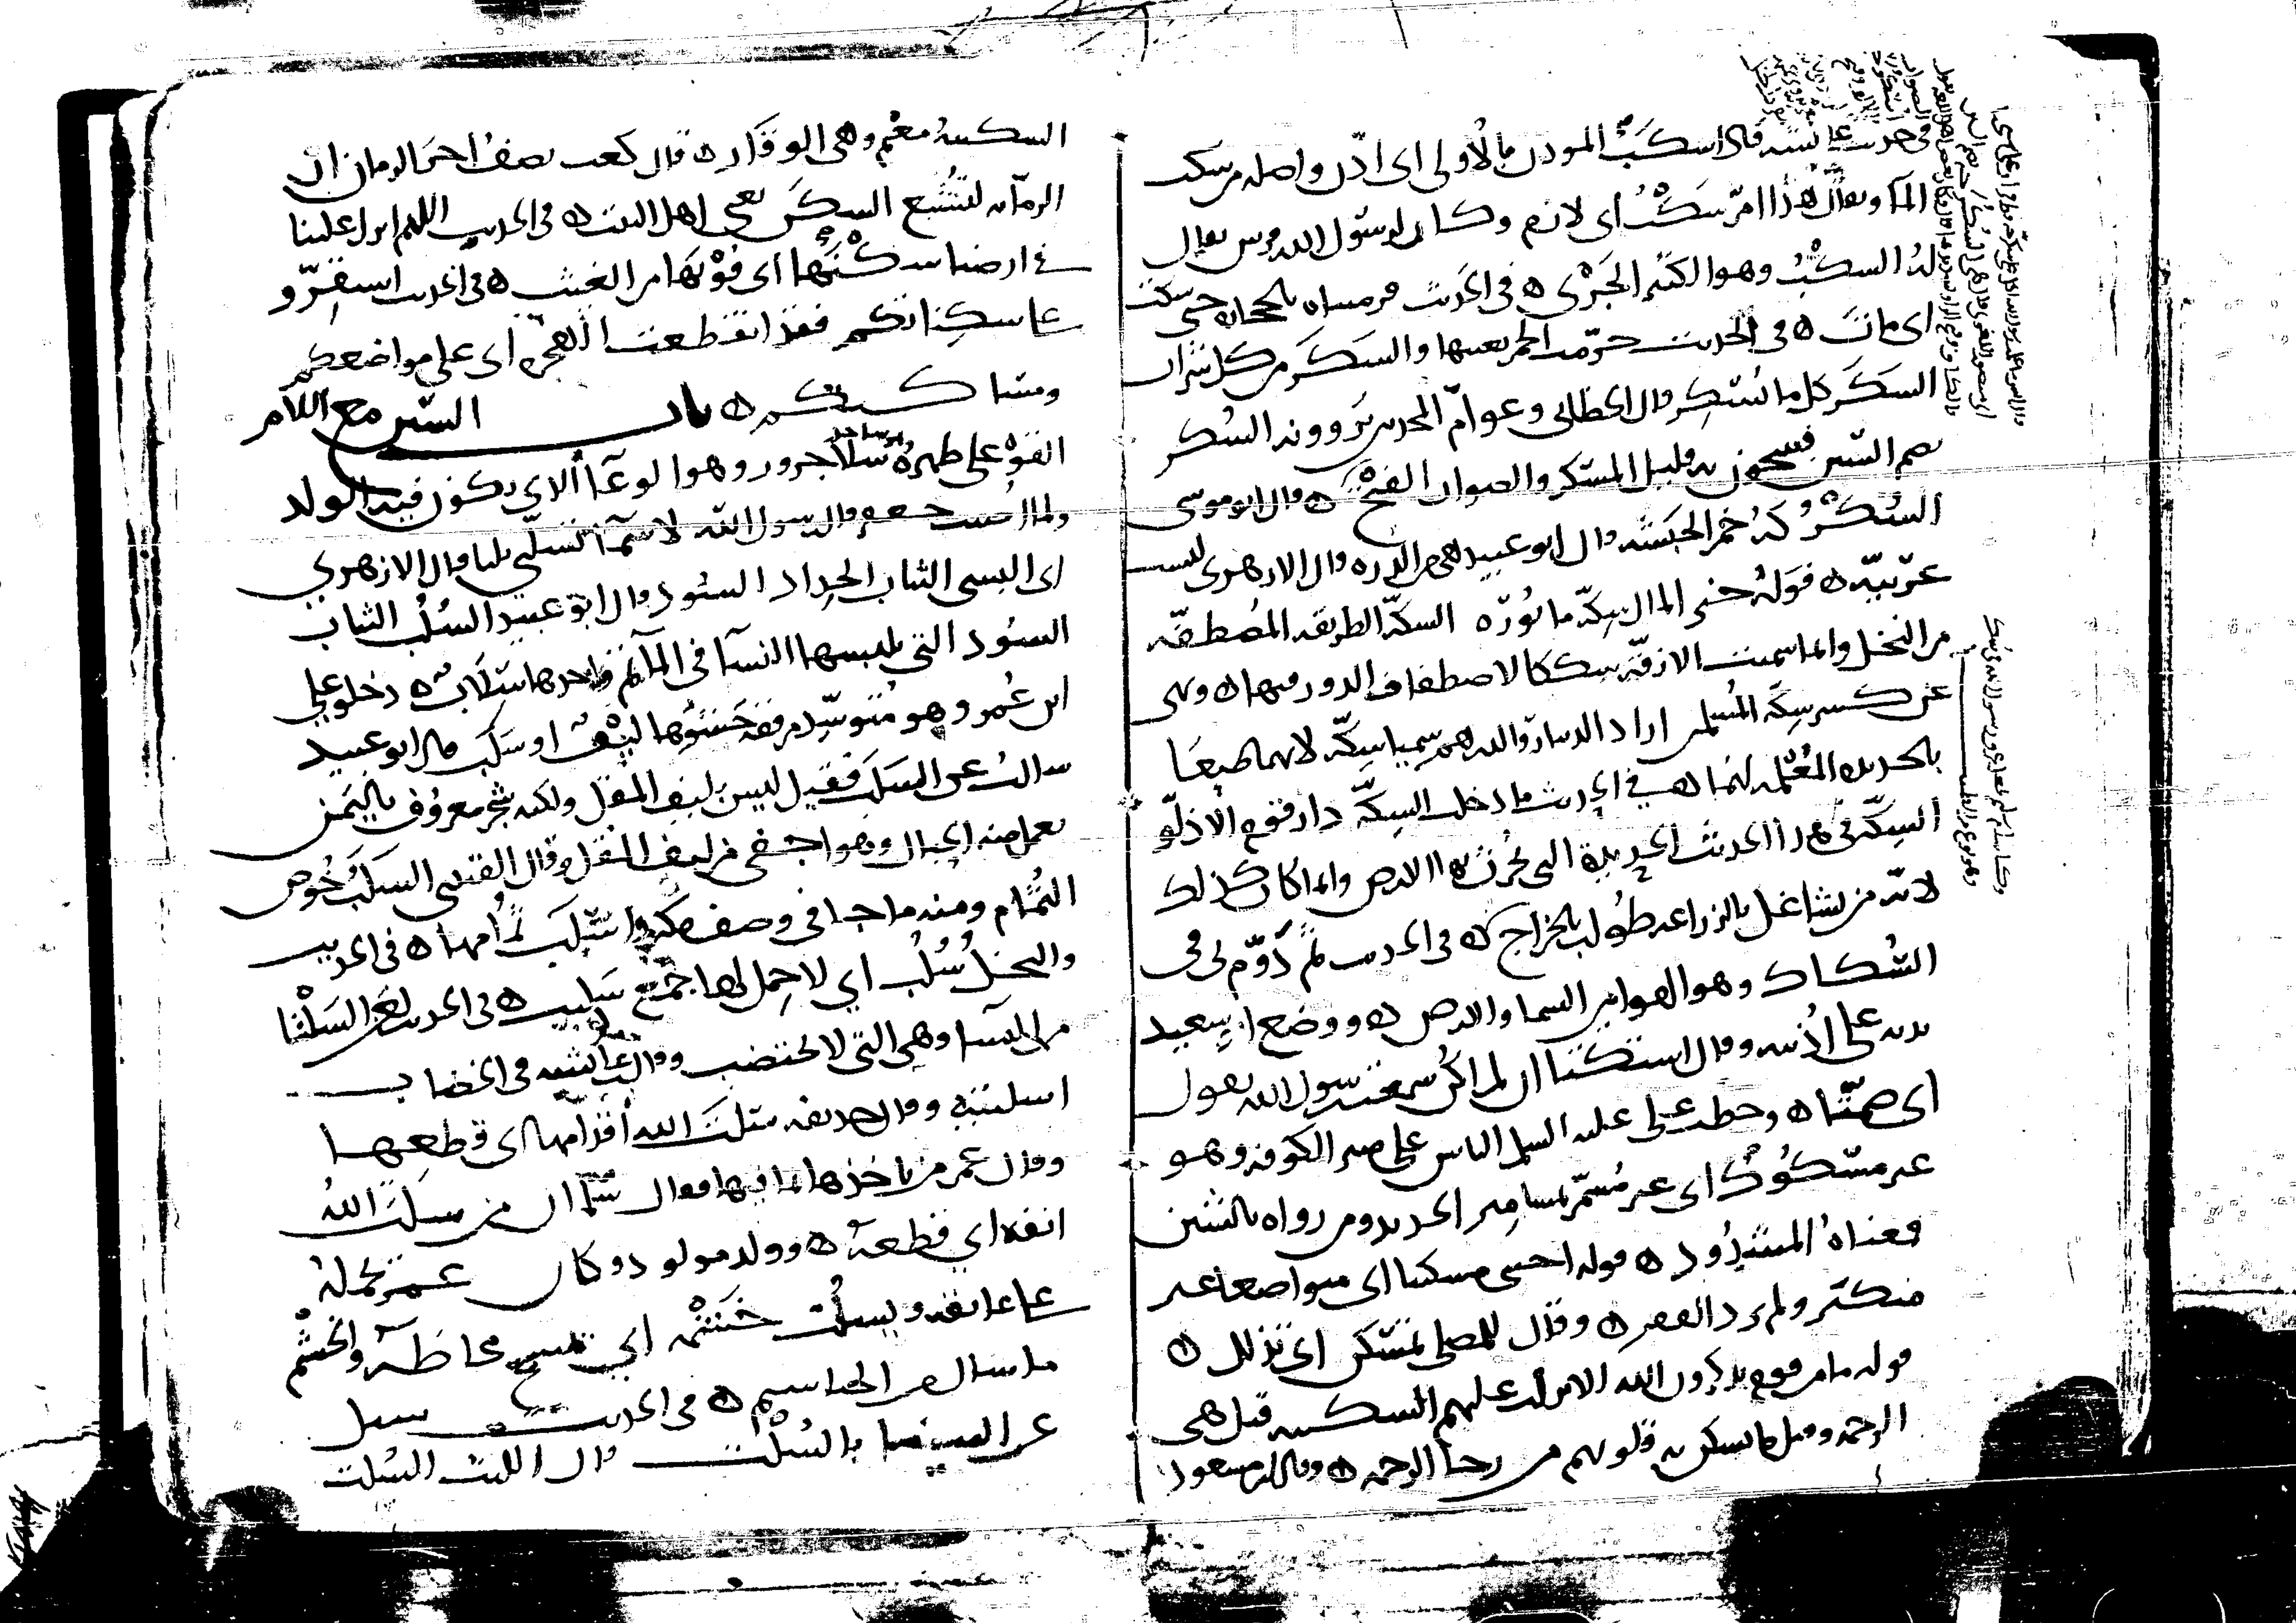 في حديث عائشة فاذا سكب المؤذن بالأولى اى اذّن واصله من سكب
الماء ويقال هذا امر سكب اى لازم وكان لرسول الله فرس يقال
له السكب وهو الكثير الجرى ه في الحديث فرميناه بالحجارة حتى سكت
اى مات ه في الحديث حرمت الخمر بعينها والسكر من كل شراب
السكر كل ما يسكر قال الخطابى وعوام المحدثين يروونه السكر
بضم السين فيبيحون به قليل المسكر والصواب الفتح ه وقال ابو موسى
السكركة خمر الحبشة قال ابو عبيد هى من الذرة وقال الازهرى ليست
عربية ه قوله خير المال سكة مأبورة السكة الطريقة المصطفة
من النخل وانما سميت الازقة سككا لاصطفاف الدور فيها ه ونهى
عن كسر سكة المسلمين اراد الدينار والدرهم سميا سكة لانهما طبعا
بالحديدة المعلمة لهما ه في الحديث ما دخلت السكة دار قوم الا ذلوا
السكة فى هذا الحديث الحديدة التى يحرث بها الارض وانما كان كذلك
لانه من تشاغل بالزراعة طولب بالخراج ه في الحديث ثم دوم بى فى
السكاك وهو الهواء بين السماء والارض ه ووضع ابو سعيد
يديه على اذنيه وقال استكتا ان لم اكن سمعت رسول الله يقول
اى صمتا ه وخطب على عليه السلم الناس على منبر الكوفة وهو
غير مسكوك اى غير مسمر بمسامير الحديد ومن رواه بالشين
فمعناه المشدود ه قوله احينى مسكينا اى متواضعا غير
متكبر ولم يرد الفقر ه وقال للمصلى تمسكن اى تذلل ه
قوله ما من قوم يذكرون الله الا نزلت عليهم السكينة قيل هى
الرحمة وقيل ما يسكن به قلوبهم من رجاء الرحمة ه وقال ابن مسعود
السكينة مغنم وهى الوقار ه قال كعب يصف اخر الزمان ان
الرمانة لتشبع السكن يعنى اهل البيت ه في الحديث اللهم انزل علينا
في ارضنا سكنها اى قوتها من الغيث ه في الحديث استقروا
على سكناتكم فقد انقطعت الهجرة اى على مواضعكم
ومساكنكم ه باب السين مع اللام
القوه على ظهره سلا جزور وهو الوعاء الذي يكون فيه الولد
ولما اصيب جعفر قال رسول الله لاسماء تسلبى ثلثا قال الازهري
اى البسى الثياب الحداد السود وقال ابو عبيد السلب الثياب
السود التى يلبسها النساء في المآتم واحدها سلاب ه دخلوا على
ابن عمر وهو متوسد مرفقة حشوها ليف او سلب قال ابو عبيد
سالت عن السلب فقيل ليس بليف المقل ولكنه شجر معروف باليمن
يعمل منه الحبال وهو اجفى من ليف المقل وقال القتبى السلب خوص
الثمام ومنه ما جاء في وصف مكة واسلب ثمامها ه في الحديث
والنخل سلب اي لا حمل لها جمع سليب ه في الحديث لعن السلتاء
من النساء وهي التى لا تختضب وقالت عائشة في الخضاب
اسلتيه وقال حذيفة سلت الله اقدامها اى قطعها
وقال عمر من ياخذها بما فيها فقال سلمان من سلت الله
انفه اي قطعه ه وولد مولود وكان عمر يحمله
على عاتقه ويسلت خشمه اى يمسح مخاطه والخشم
ما سال من الخياشيم ه في الحديث سئل
عن البيضاء بالسلت قال الليث السلت